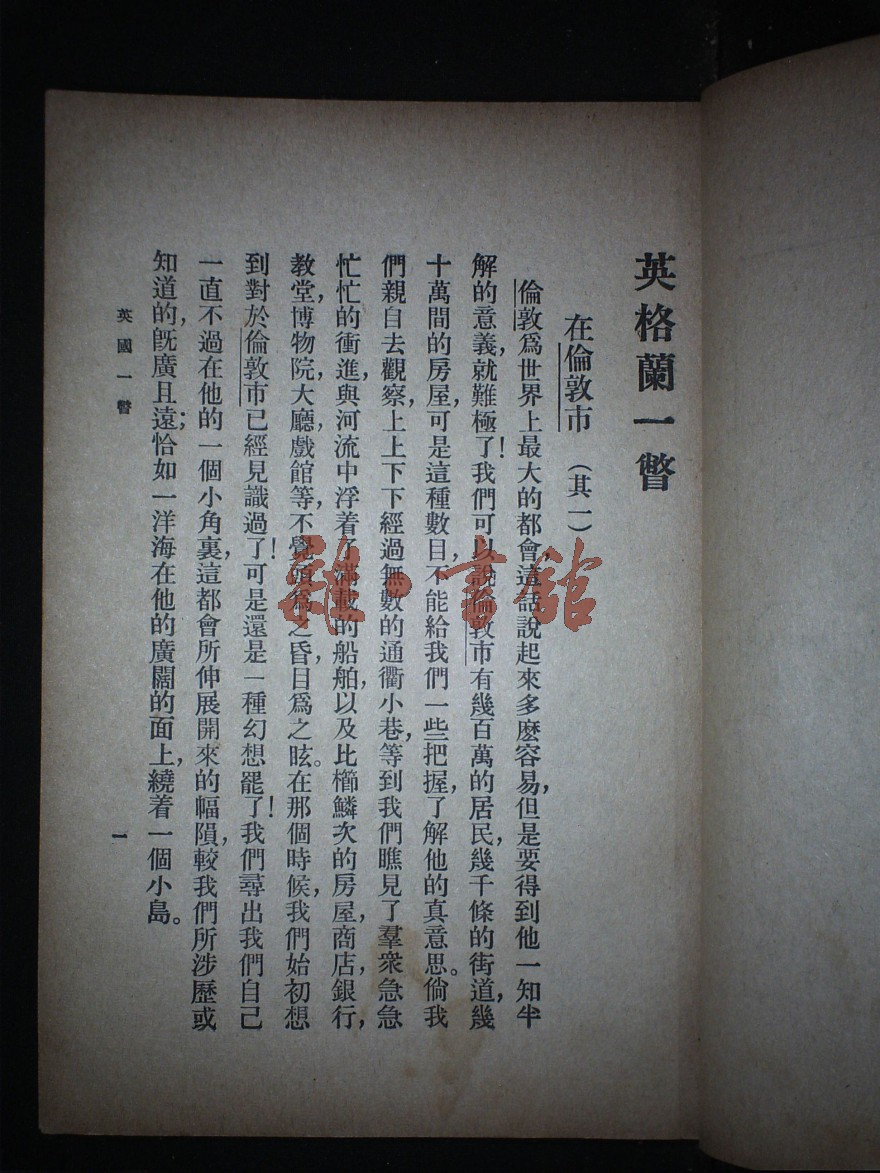 英格蘭一瞥
在倫敦市 (其一)
倫敦爲世界上最大的都會,這話說起來多麽容易,但是要得到他一知半
解的意義,就難極了!我們可以說倫敦市有幾百萬的居民,幾千條的街道,幾
十萬間的房屋,可是這種數目,不能給我們一些把握,了解他的真意思。倘我
們親自去觀察,上上下下經過無數的通衢小巷,等到我們瞧見了羣衆急急
忙忙的衝進,與河流中浮着了滿載的船舶,以及比櫛鱗次的房屋,商店,銀行,
教堂,博物院,大廳,戲館等,不覺頭爲之昏,目爲之眩。在那個時候,我們始初想
到對於倫敦市已經見識過了!可是還是一種幻想罷了!我們尋出我們自己
一直不過在他的一個小角裏,這都會所伸展開來的幅隕,較我們所涉歷或
知道的,旣廣且遠;恰如一洋海在他的廣闊的面上,繞着一個小島。
英國一瞥
一
雜·書館